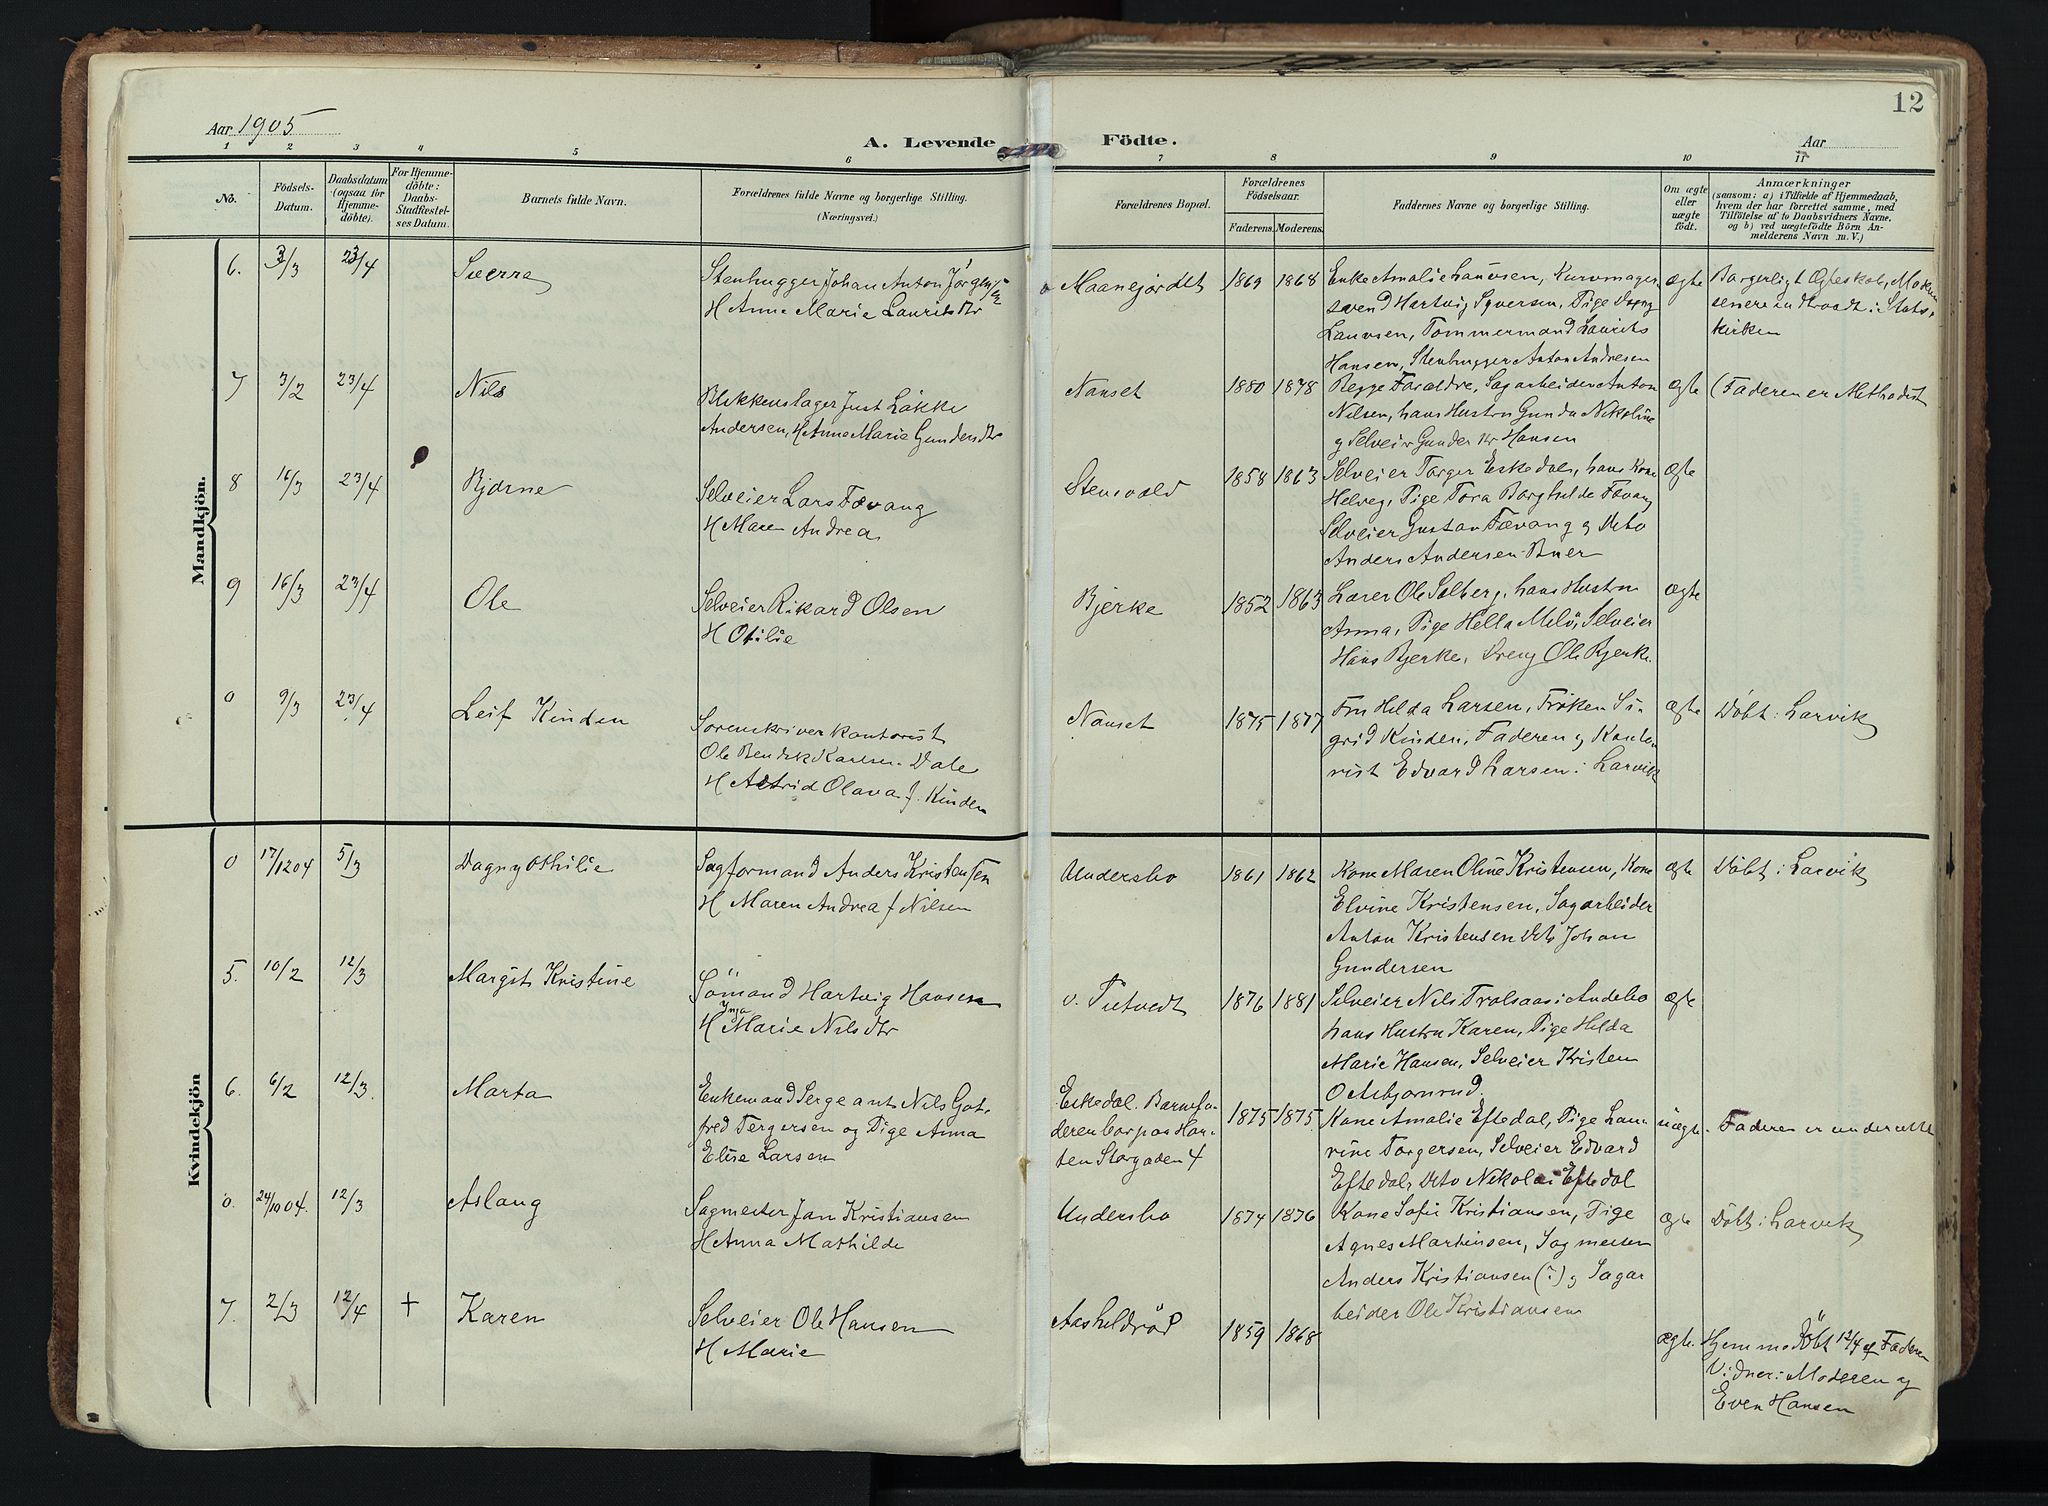 12
Aar 1905
A. Levende
Födte.
Aar
1 2 3 4 5 6 7 8 9 10 11
No.
Födsels-
Datum.
Daabsdatum
(ogsaa for
Hjemme-
döbte).
For Hjemme-
döbte:
Daabs-
Stadfæstel-
ses Datum.
Barnets fulde Navn.
Forældrenes fulde Navne og borgerlige Stilling.
(Næringsvei.)
Forældrenes Bopæl.
Forældrenes
Födselsaar.
Faderens. Moderens.
Faddernes Navne og borgerlige Stilling.
Om ægte
eller
uægte
födt.
Anmærkninger
(saasom: a) i Tilfælde af Hjemmedaab,
hvem der har forrettet samme, med
Tilföielse af to Daabsvidners Navne,
og b) ved uægtefödte Börn An-
melderens Navn m. V.)
Mandkjön.
6. 3/3 23/4 Sverre
Stenhugger Johan Anton Jörgens
H Anne Marie Laurits Dtr
Maanejordet 1869 1868
Enke Amalie Lauvsen, Kurvmager
svend Hartvig Syversen, Pige Dagny
Lauvsen, Tømmermand Laurits
Hansen, Stenhugger Anton Andresen
ægte
Borgerligt Ægteskab, Moder
senere indtraadt i Stats-
kirken
7 3/2 23/4 Nils
Blikkenslager Just Løkke
Andersen, H Anne Marie Gunders dtr
Nanset 1880 1878
Begge Forældre, Sagarbeider Anton
Nilsen, hans Hustru Gunda Nikoline
og Selveier Gunder Kr Hansen
ægte
(Faderen er Methodist
8 16/3 23/4 Bjarne
Selveier Lars Fævang
H Maren Andrea
Stenvold 1858 1863
Selveier Torger Eskedal, hans Kone
Helveg, Pige Tora Borghilde Fævang
Selveier Gustav Fævang og Dito
Anders Andersen Buer
ægte
9 16/3 23/4 Ole
Selveier Rikard Olsen
H Otilie
Bjerke 1852 1863
Lærer Ole Solberg, hans Hustru
Anna, Pige Hella Melø, Selveier
Hans Bjerke, Dreng Ole Bjerke.
ægte
0 9/3 23/4 Leif Kinden
Sorenskriverkontorist
Ole Bendik Karlsen Dale
H Astrid Olava f. Kinden
Nanset 1875 1877
Fru Hilda Larsen, Frøken Si-
grid Kinden, Faderen og Konto-
rist Edvard Larsen i Larvik
ægte
Døbt i Larvik
Kvindekjön
0 17/12 04 5/3 Dagny Othilie
Sagformand Anders Kristensen
H Maren Andrea f Nilsen
Undersbo 1861 1862
Kone Maren Oline Kristensen, Kone
Elvine Kristensen, Sagarbeider
Anton Kristensen Dito Johan
Gundersen
ægte
Døbt i Larvik
5. 10/2 12/3 Margit Kristine
Sömand Hartvig Hansen
H Inga Marie Nils dtr
v. Tutvedt 1876 1881
Selveier Nils Trolsaas i Andebo
hans Hustru Karen, Pige Hilda
Marie Hansen, Selveier Kristen
O Asbjørnrud.
ægte
6. 6/2 12/3. Marta
Enkemand Sergeant Nils Got-
fred Tergersen og Pige Anna
Elise Larsen
Eskedal. Barnefa-
deren bor paa Hor-
ten Storgaden 4
1875 1875.
Kone Amalie Eftedal, Pige Lau-
rine Torgersen, Selveier Edvard
Eftedal, Dito Nikolai Eftedal
uægte.
Faderen er underrettet
0. 24/10 04. 12/3 Aslaug
Sagmester Jan Kristiansen
H Anna Mathilde
Undersbo 1874 1876
Kone Sofie Kristiansen, Pige
Agnes Martinsen, Sagmester
Anders Kristiansen (?) og Sagar
beider Ole Kristiansen
ægte
Døbt i Larvik
7. 2/3 12/4 + Karen
Selveier Ole Hansen
H Marie
Aasheldröd 1859 1868
ægte.
Hjemmedöbt 12/4 af Faderen
Vidner: Moderen og
Even Hansen